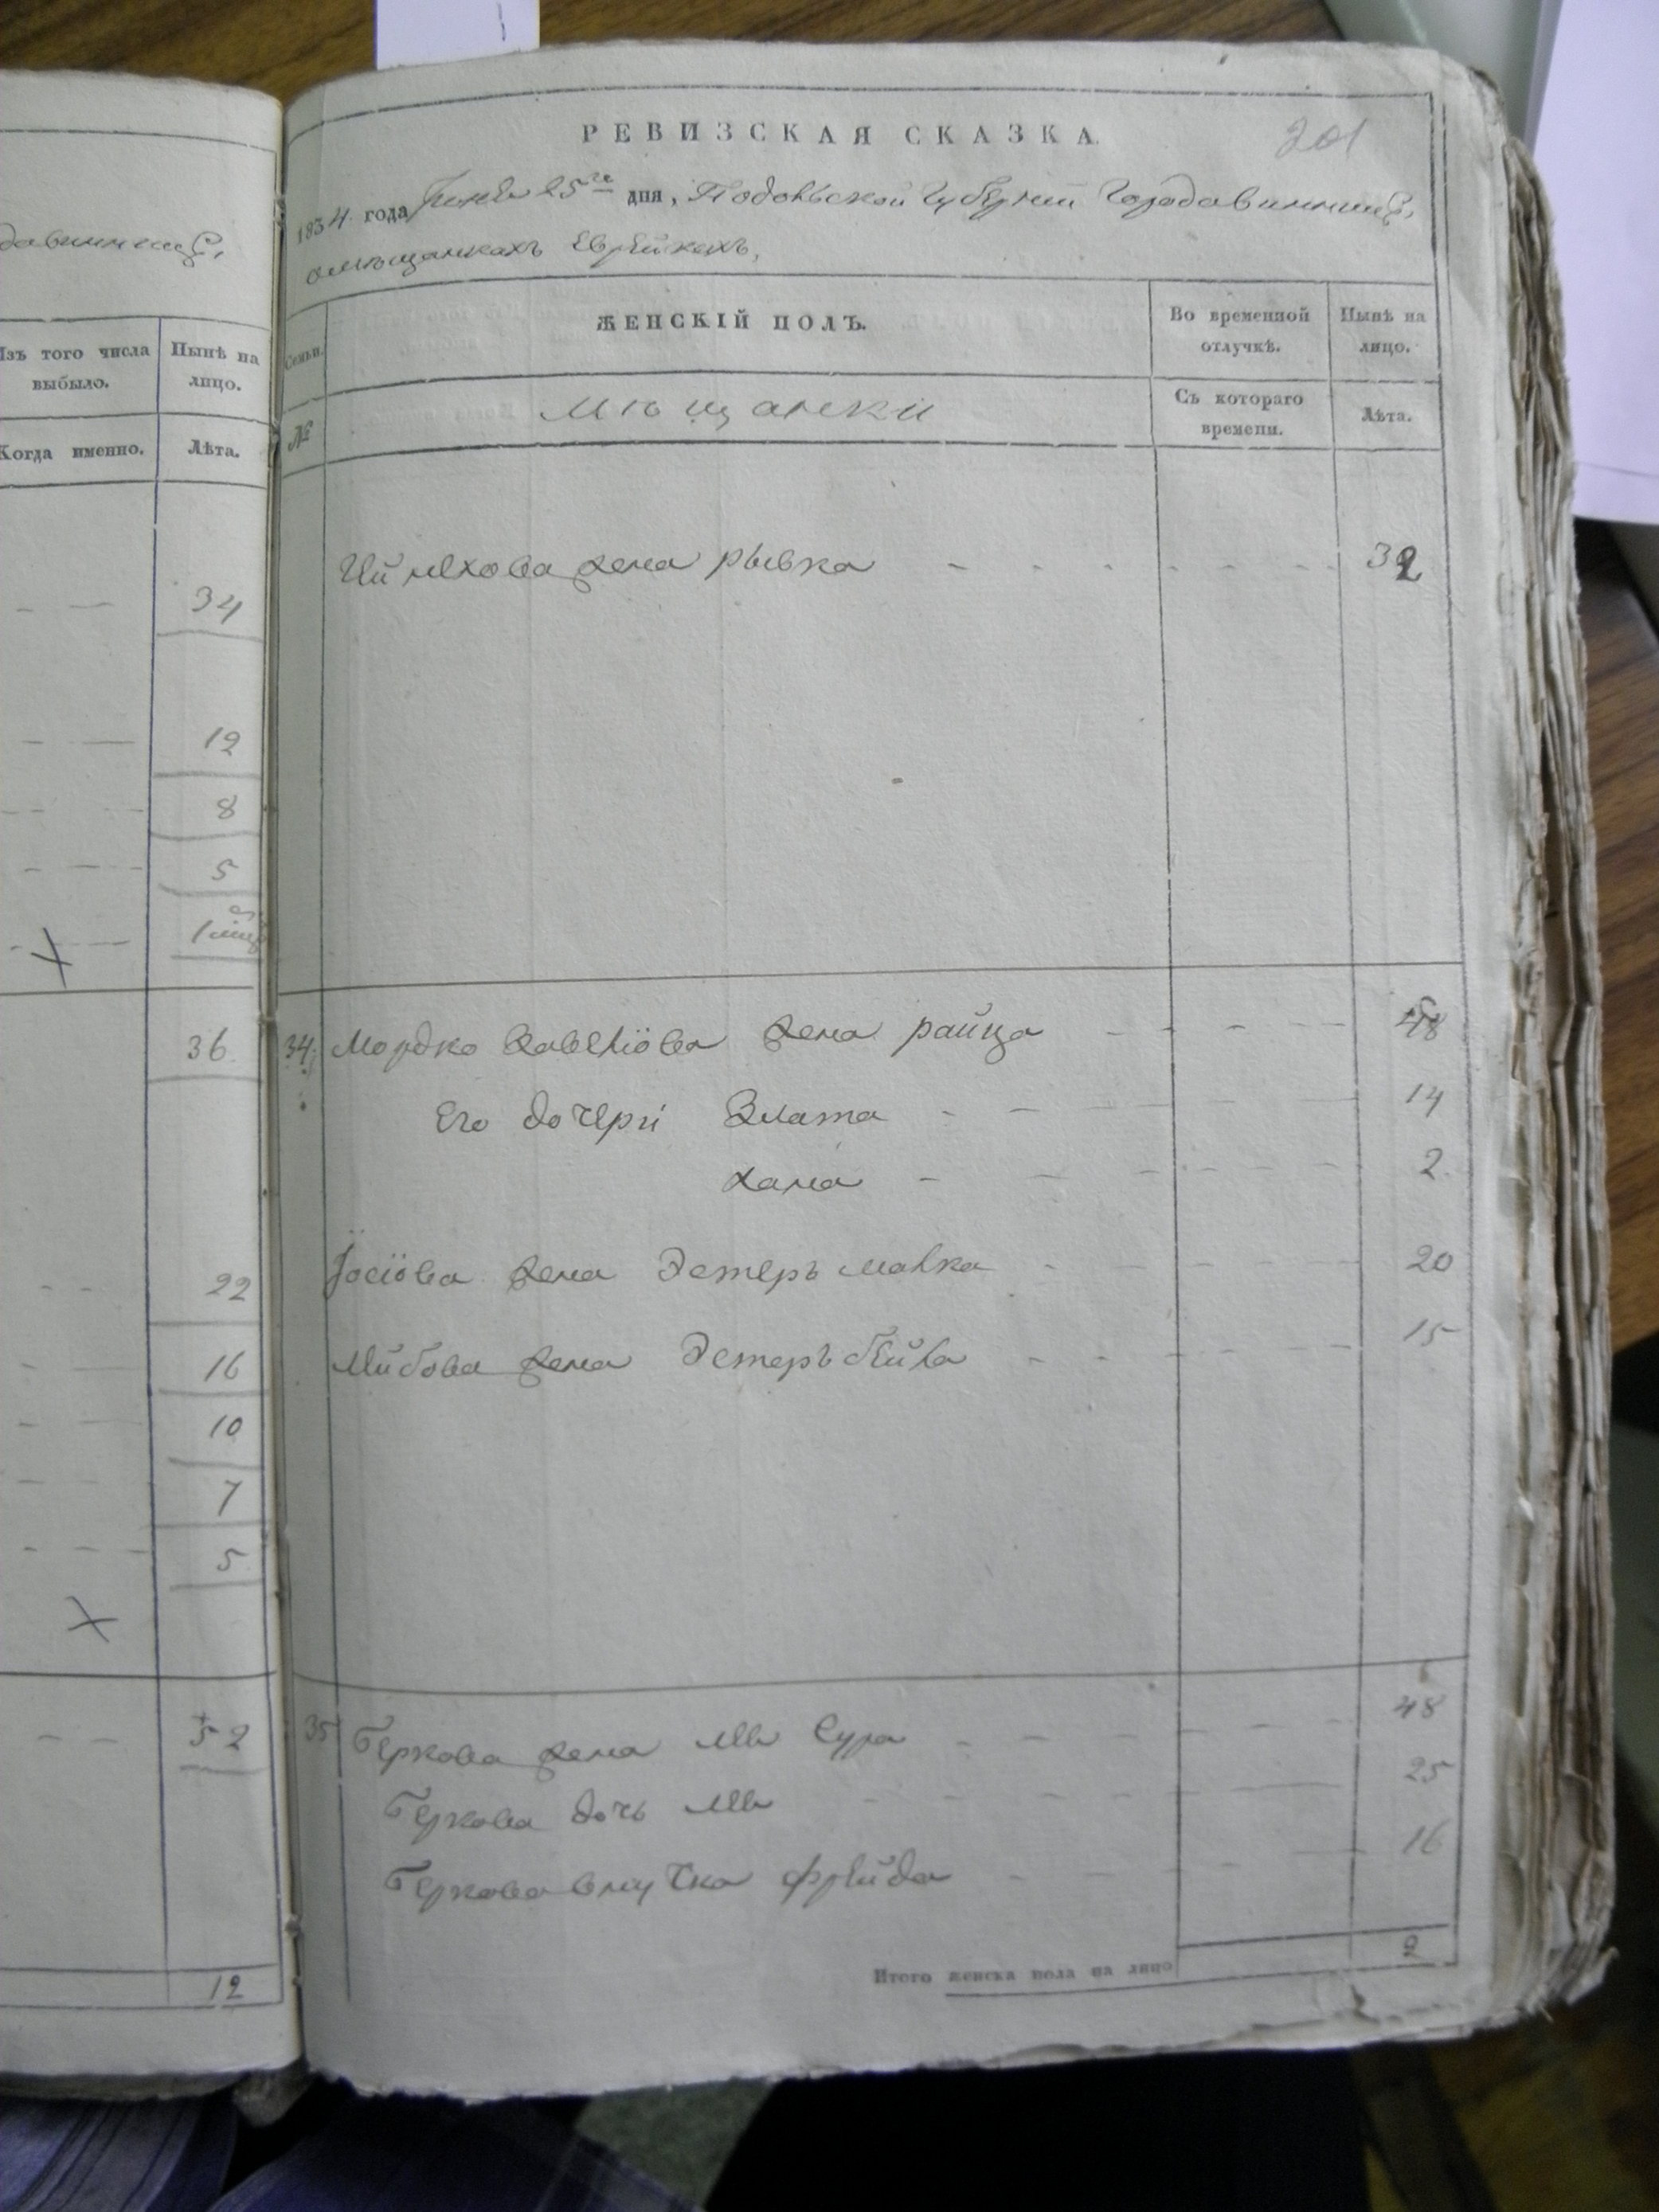 давинницѣ,
Изъ того числа выбыло.
Нынѣ на лицо.
Когда именно.
Лѣта.
34
12
8
5
1
36
22
16
10
7
5
52
12
201
РЕВИЗСКАЯ СКАЗКА.
1834 года 25го дня, Подольской Губерніи Города Винницѣ,
омѣщанкахъ Еврейкахъ,
Семьи.
ЖЕНСКІЙ ПОЛЪ.
Во временной отлучкѣ.
Нынѣ на лицо.
№
Мѣщанки
Съ котораго времени.
Лѣта.
жена Рывка 32
34. Мордко жена Райца 48
Его дочери Злата 14
Хана 2.
Іосіова жена Эстеръ Малка 20
Лейбова жена Эстеръ Бейла 15
35 Беркова жена Сура 48
Беркова дочь 25
Беркова внучка Фрейда 16
Итого женска пола на лицо 9